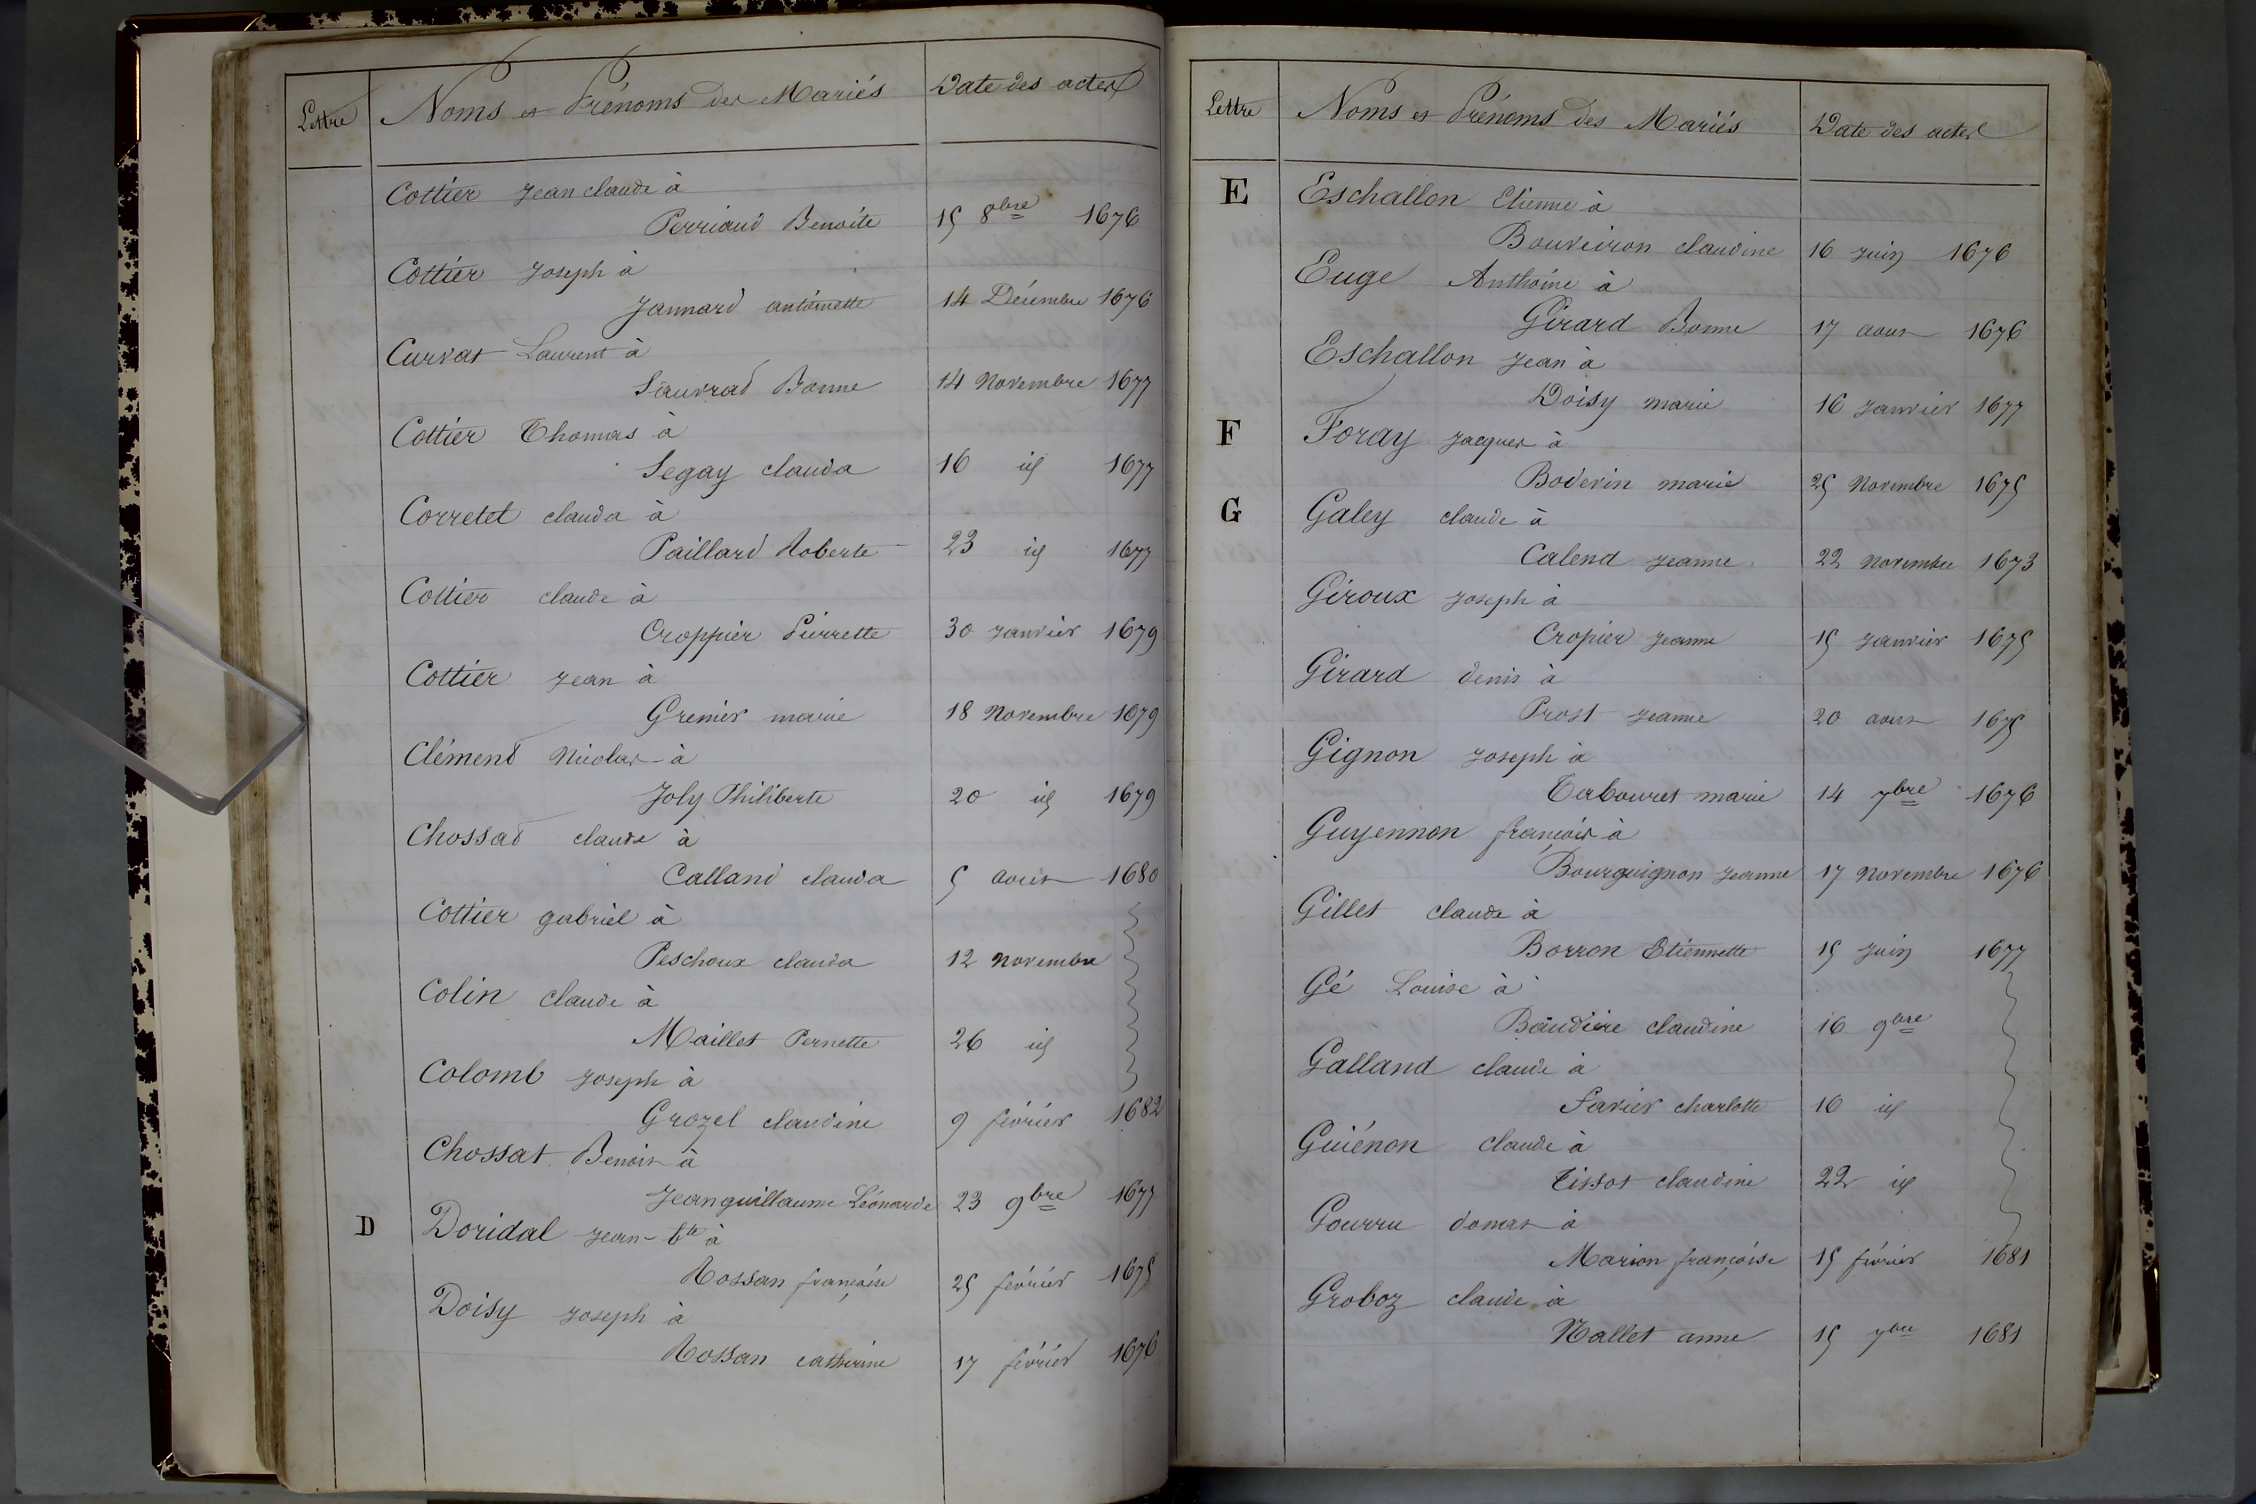 Lettre Noms et Prénoms des Mariés Date des actes
Cottier Jean claude à
Perriaud Benoite 15 8bre 1676
Cottier Joseph à
Jannard antoinette 14 Décembre 1676
Curvat Laurent à
Sauvrad Bonne 14 Novembre 1677
Cottier Thomas à
Segay clauda 16 id 1677
Corretet clauda à
Paillard Roberte 23 id 1677
Cottier claude à
Croppier Pierrette 30 Janvier 1679
Cottier Jean à
Grenier marie 18 Novembre 1679
Clémend Nicolas à
Joly Philiberte 20 id 1679
Chossad claude à
Calland clauda 5 Aout 1680
Cottier gabriel à
Peschoux clauda 12 Novembre
Colin Claude à
Maillet Pernette 26 id
Colomb Joseph à
Grozel claudine 9 février 1682
Chossat Benoit à
Jeanguillaume Léonarde 23 9bre 1677
D Doridal Jean-bte à
Rossan françoise 25 février 1675
Doisy Joseph à
Rossan catherine 17 février 1676
Lettre Noms et Prénoms des Mariés Date des actes
E Eschallon Etienne à
Bouveiron claudine 16 Juin 1676
Euge Anthoine à
Girard Bonne 17 aout 1676
Eschallon Jean à
Doisy marie 16 Janvier 1677
F Foray Jacques à
Boderin marie 25 Novembre 1675
G Galey claude à
Calend Jeanne 22 Novembre 1673
Giroux Joseph à
Cropier Jeanne 15 Janvier 1675
Girard denis à
Prost Jeanne 20 aout 1675
Gignon Joseph à
Tabouret marie 14 7bre 1676
Guyennon françois à
Bourguignon Jeanne 17 Novembre 1676
Gillet Claude à
Borron Etiennette 15 Juin 1677
Gé Louise à
Baudière claudine 16 9bre
Galland claude à
Favier charlotte 16 id
Guiénon claude à
Tissot claudine 22 id
Gourru domas à
Marion françoise 15 février 1681
Groboz claude à
Nallet anne 15 7bre 1681